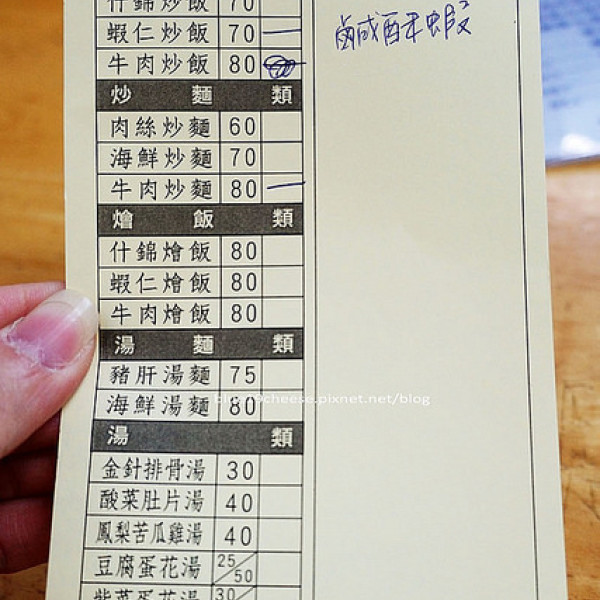 什錦炒飯 70
蝦仁炒飯 70 一
牛肉炒飯 80
炒麵類
肉絲炒麵 60
海鮮炒麵 70
牛肉炒麵 80 一
燴飯類
什錦燴飯 80
蝦仁燴飯 80
牛肉燴飯 80
湯麵類
豬肝湯麵 75
海鮮湯麵 80
湯類
金針排骨湯 30
酸菜肚片湯 40
鳳梨苦瓜雞湯 40
豆腐蛋花湯 25/50
紫菜蛋花湯 30/
鹹酥蝦
blog19cheese.pixnet.net/blog